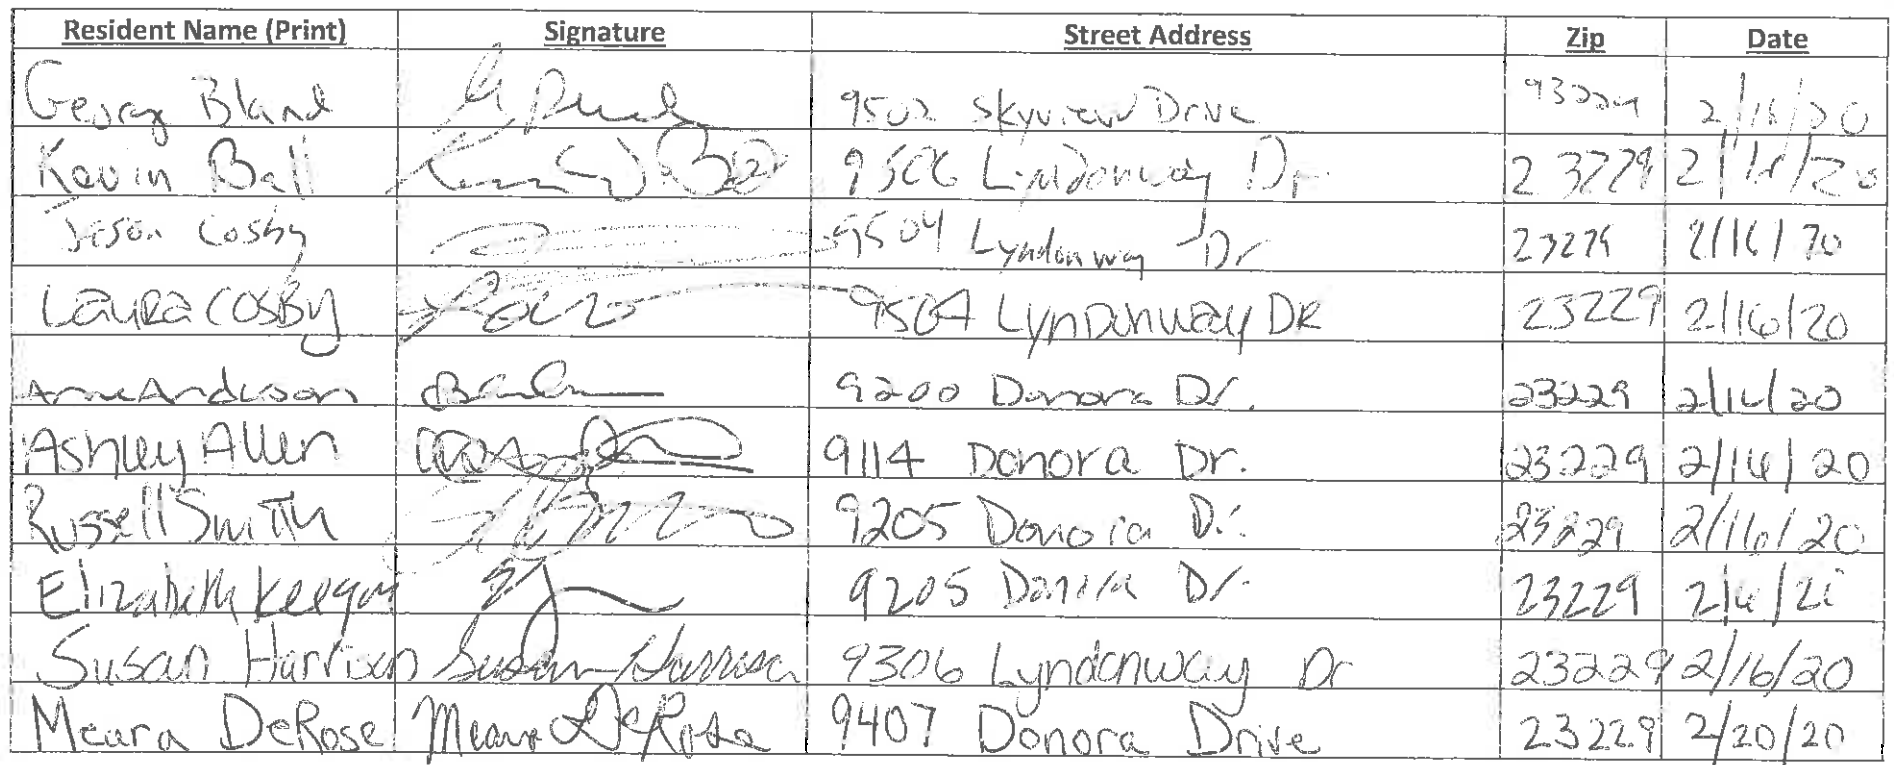 Resident Name (Print) Signature Street Address Zip Date
George Bland 9502 Skyview Drive 93229 2/16/20
Kevin Ball 9506 Lyndonway Dr 23229 2/16/20
Jason Cosby 9504 Lyndonway Dr 23229 2/16/20
Laura Cosby 9504 Lyndonway DR 23229 2/16/20
Anne Anderson 9200 Donora Dr. 23229 2/16/20
Ashley Allen 9114 Donora Dr. 23229 2/16/20
Russell Smith 9205 Donora Dr. 23229 2/16/20
Elizabeth Keegan 9205 Donora Dr 23229
Susan Harrison Susan Harrison 9306 Lyndonway Dr 23229 2/16/20
Meara DeRose Meara DeRose 9407 Donora Drive 23229 2/20/20